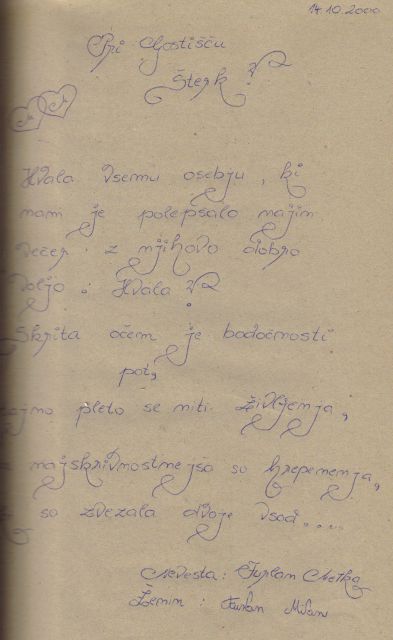 14.10.2000
Pri Gostišču
Šterk!
Hvala vsemu osebju, ki
nam je polepšalo najin
večer z njihovo dobro
voljo. Hvala!
Skrita očem je bodočnosti
pot,
pleto se niti življenja,
najskrivnostnejša so hrepenenja,
so zvezala dvoje usod....
Nevesta: Furlan Metka
Ženin: Furlan Milan